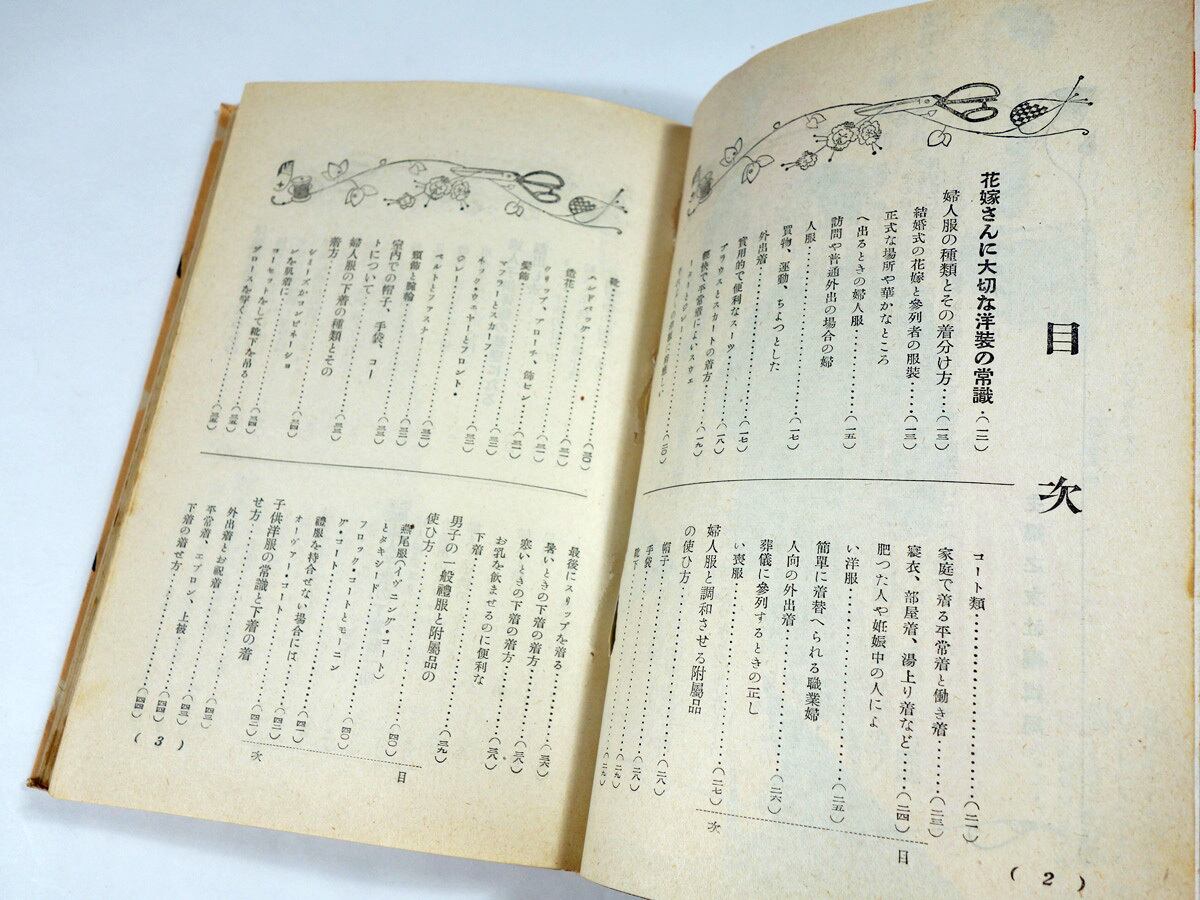 目次
花嫁さんに大切な洋装の常識・(一二)
婦人服の種類とその着分け方……(一三)
結婚式の花嫁と參列者の服装……(一三)
正式な場所や華かなところ
へ出るときの婦人服…………(一五)
訪問や普通外出の場合の婦
人服……………………
買物、運動、ちよつとした
外出着……………………(一七)
實用的で便利なスーツ………(一七)
ブラウスとスカートの着方……(一八)
輕快で平常着によいスウェ
コート類……………………(二一)
家庭で着る平常着と働き着……(二三)
寢衣、部屋着、湯上り着など……(二四)
肥つた人や妊娠中の人によ
い洋服……………………(二五)
簡單に着替へられる職業婦
人向の外出着………………(二六)
葬儀に參列するときの正し
い喪服……………………
婦人服と調和させる附屬品
の使ひ方…………………(二七)
帽子……………………(二八)
手袋……………………(二八)
靴下……………………(二九)
目次
(2)
靴……………………(三〇)
ハンドバッグ………………(三一)
造花……………………(三一)
クリップ、ブローチ、飾ピン
髪飾……………………(三一)
マフラーとスカーフ…………(三二)
ネックウエヤーとフロント・
ヴレー……………………(三二)
ベルトとファスナー
頸飾と腕輪…………………(三二)
室内での帽子、手袋、コー
トについて…………………(三三)
婦人服の下着の種類とその
着方……………………(三三)
シミーズかコンビネーショ
ンを肌着に…………………(三四)
コーセットをして靴下を吊る
ブロースを穿く………………(三五)
最後にスリップを着る………(三六)
暑いときの下着の着方………(三八)
寒いときの下着の着方………(三八)
お乳を飲ませるのに便利な
下着……………………
男子の一般禮服と附屬品の
使ひ方……………………(三九)
燕尾服(イヴニング・コート)
とタキシード………………(四〇)
フロック・コートとモーニン
グ・コート…………………(四〇)
禮服を持合せない場合には……(四一)
オーヴァー・コート…………(四二)
子供洋服の常識と下着の着
せ方……………………(四二)
外出着とお祝着………………(四三)
平常着、エプロン、上被………(四三)
下着の着せ方…………………(四四)
目次
(3)